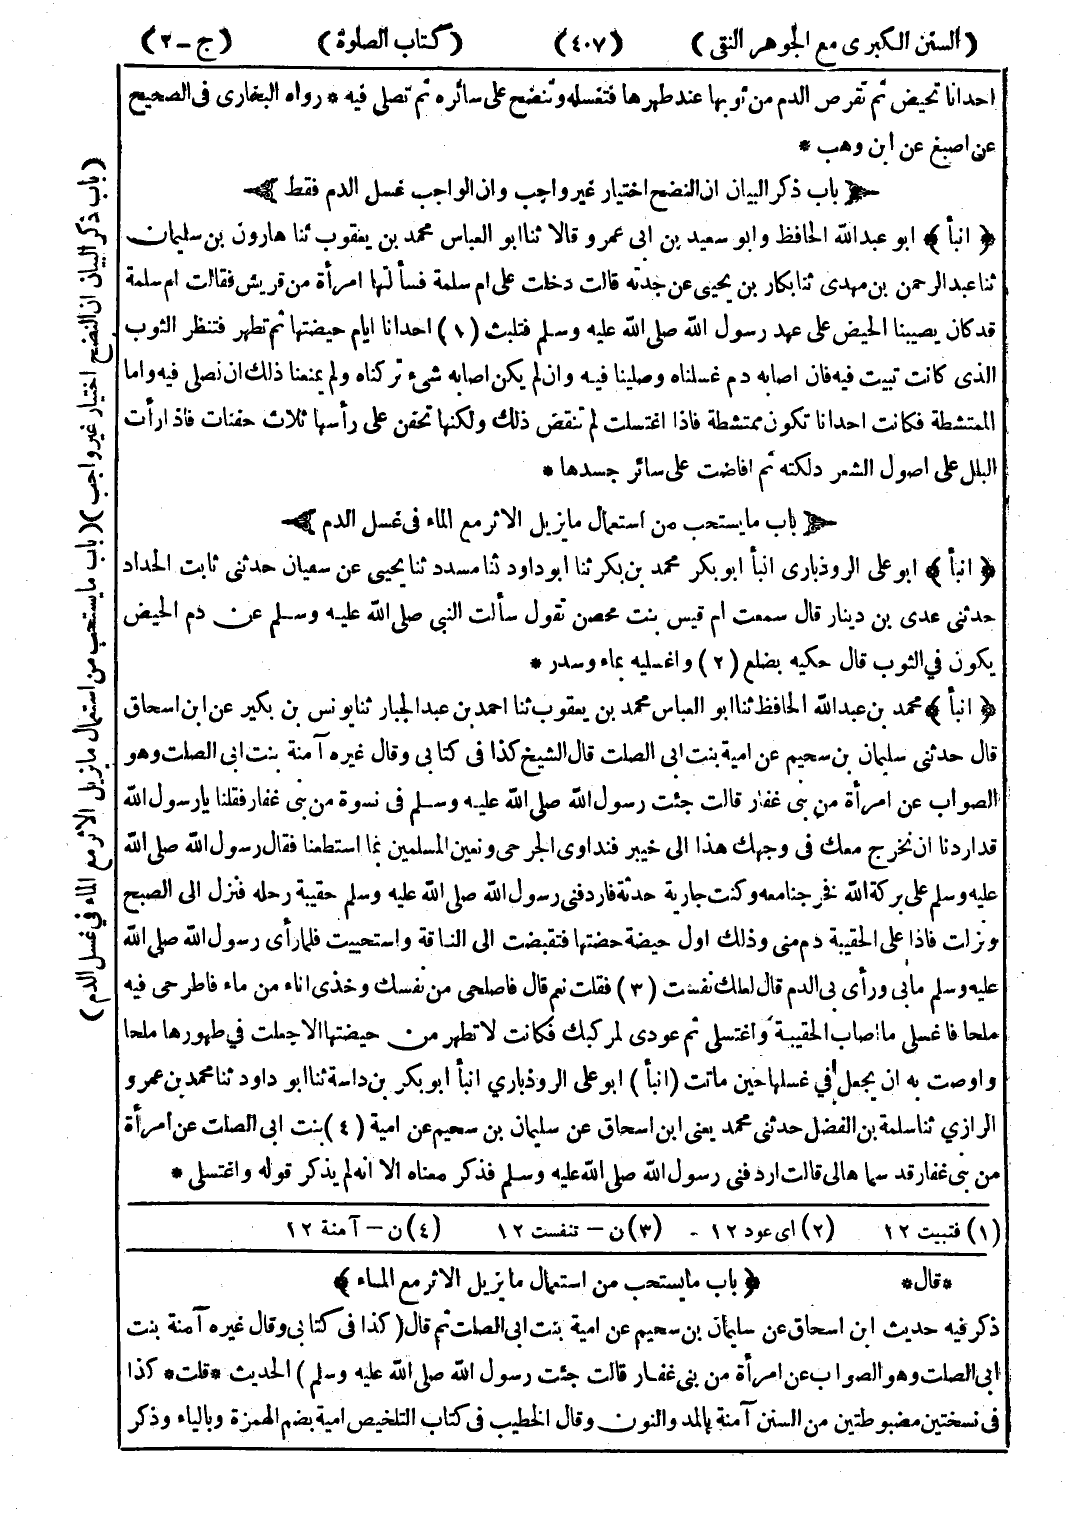 (السنن الكبرى مع الجوهر النقى) (٤٠٧) (كتاب الصلوة) (ج-٢)
احدانا تحيض ثم تقرص الدم من ثوبها عند طهرها فتغسله وتنضح على سائره ثم تصلى فيه * رواه البخارى فى الصحيح
عن اصبغ عن ابن وهب *
باب ذكر البيان ان النضح اختيار غير واجب وان الواجب غسل الدم فقط
﴿ انبأ ﴾ ابو عبدالله الحافظ وابو سعيد بن ابى عمرو قالا ثنا ابو العباس محمد بن يعقوب ثنا هارون بن سليمان
ثنا عبد الرحمن بن مهدى ثنا بكار بن يحيى عن جدته قالت دخلت على ام سلمة فسألتها امرأة من قريش فقالت ام سلمة
قد كان يصيبنا الحيض على عهد رسول الله صلى الله عليه وسلم فتلبث (١) احدانا ايام حيضتها ثم تطهر فتنظر الثوب
الذى كانت تبيت فيه فان اصابه دم غسلناه وصلينا فيه وان لم يكن اصابه شىء تركناه ولم يمنعنا ذلك ان نصلى فيه واما
الممتشطة فكانت احدانا تكون ممتشطة فاذا اغتسلت لم تنقض ذلك ولكنها تحفن على رأسها ثلاث حفنات فاذا رأت
البلل على اصول الشعر دلكته ثم افاضت على سائر جسدها *
باب ما يستحب من استعمال ما يزيل الاثر مع الماء فى غسل الدم
﴿ انبأ ﴾ ابو على الروذبارى انبأ ابو بكر محمد بن بكر ثنا ابو داود ثنا مسدد ثنا يحيى عن سفيان حدثنى ثابت الحداد
حدثنى عدى بن دينار قال سمعت ام قيس بنت محصن تقول سألت النبى صلى الله عليه وسلم عن دم الحيض
يكون في الثوب قال حكيه بضلع (٢) واغسليه بماء وسدر *
﴿ انبأ ﴾ محمد بن عبدالله الحافظ ثنا ابو العباس محمد بن يعقوب ثنا احمد بن عبد الجبار ثنا يونس بن بكير عن ابن اسحاق
قال حدثنى سليمان بن سحيم عن امية بنت ابى الصلت قال الشيخ كذا فى كتابى وقال غيره آمنة بنت ابى الصلت وهو
الصواب عن امرأة من بنى غفار قالت جئت رسول الله صلى الله عليه وسلم فى نسوة من بنى غفار فقلنا يا رسول الله
قد اردنا ان نخرج معك فى وجهك هذا الى خيبر فنداوى الجرحى ونعين المسلمين بما استطعنا فقال رسول الله صلى الله
عليه وسلم على بركة الله فخرجنا معه وكنت جارية حدثة فاردفنى رسول الله صلى الله عليه وسلم حقيبة رحله فنزل الى الصبح
ونزلت فاذا على الحقيبة دم منى وذلك اول حيضة حضتها فتقبضت الى الناقة واستحييت فلما رأى رسول الله صلى الله
عليه وسلم ما بى ورأى بى الدم قال لعلك نفست (٣) فقلت نعم قال فاصلحى من نفسك وخذى اناء من ماء فاطرحى فيه
ملحا فاغسلى ما اصاب الحقيبة واغتسلى ثم عودى لمركبك فكانت لا تطهر من حيضتها الا جعلت في طهورها ملحا
واوصت به ان يجعل في غسلها حين ماتت (انبأ) ابو على الروذباري انبأ ابو بكر بن داسة ثنا ابو داود ثنا محمد بن عمرو
الرازي ثنا سلمة بن الفضل حدثنى محمد يعنى ابن اسحاق عن سليمان بن سحيم عن امية (٤) بنت ابى الصلت عن امرأة
من بنى غفار قد سماها لى قالت اردفنى رسول الله صلى الله عليه وسلم فذكر معناه الا انه لم يذكر قوله واغتسلى *
(١) فتبيت ١٢ (٢) اى عود ١٢ - (٣) ن - تنفست ١٢ (٤) ن - آمنة ١٢
*قال* ﴿ باب ما يستحب من استعمال ما يزيل الاثر مع الماء ﴾
ذكر فيه حديث ابن اسحاق عن سليمان بن سحيم عن امية بنت ابى الصلت ثم قال (كذا فى كتابى وقال غيره آمنة بنت
ابى الصلت وهو الصواب عن امرأة من بنى غفار قالت جئت رسول الله صلى الله عليه وسلم) الحديث *قلت* كذا
فى نسختين مضبوطتين من السنن آمنة بالمد والنون وقال الخطيب فى كتاب التلخيص امية بضم الهمزة وبالياء وذكر
(باب ذكر البيان ان النضح اختيار غير واجب) (باب ما يستحب من استعمال ما يزيل الاثر مع الماء في غسل الدم)